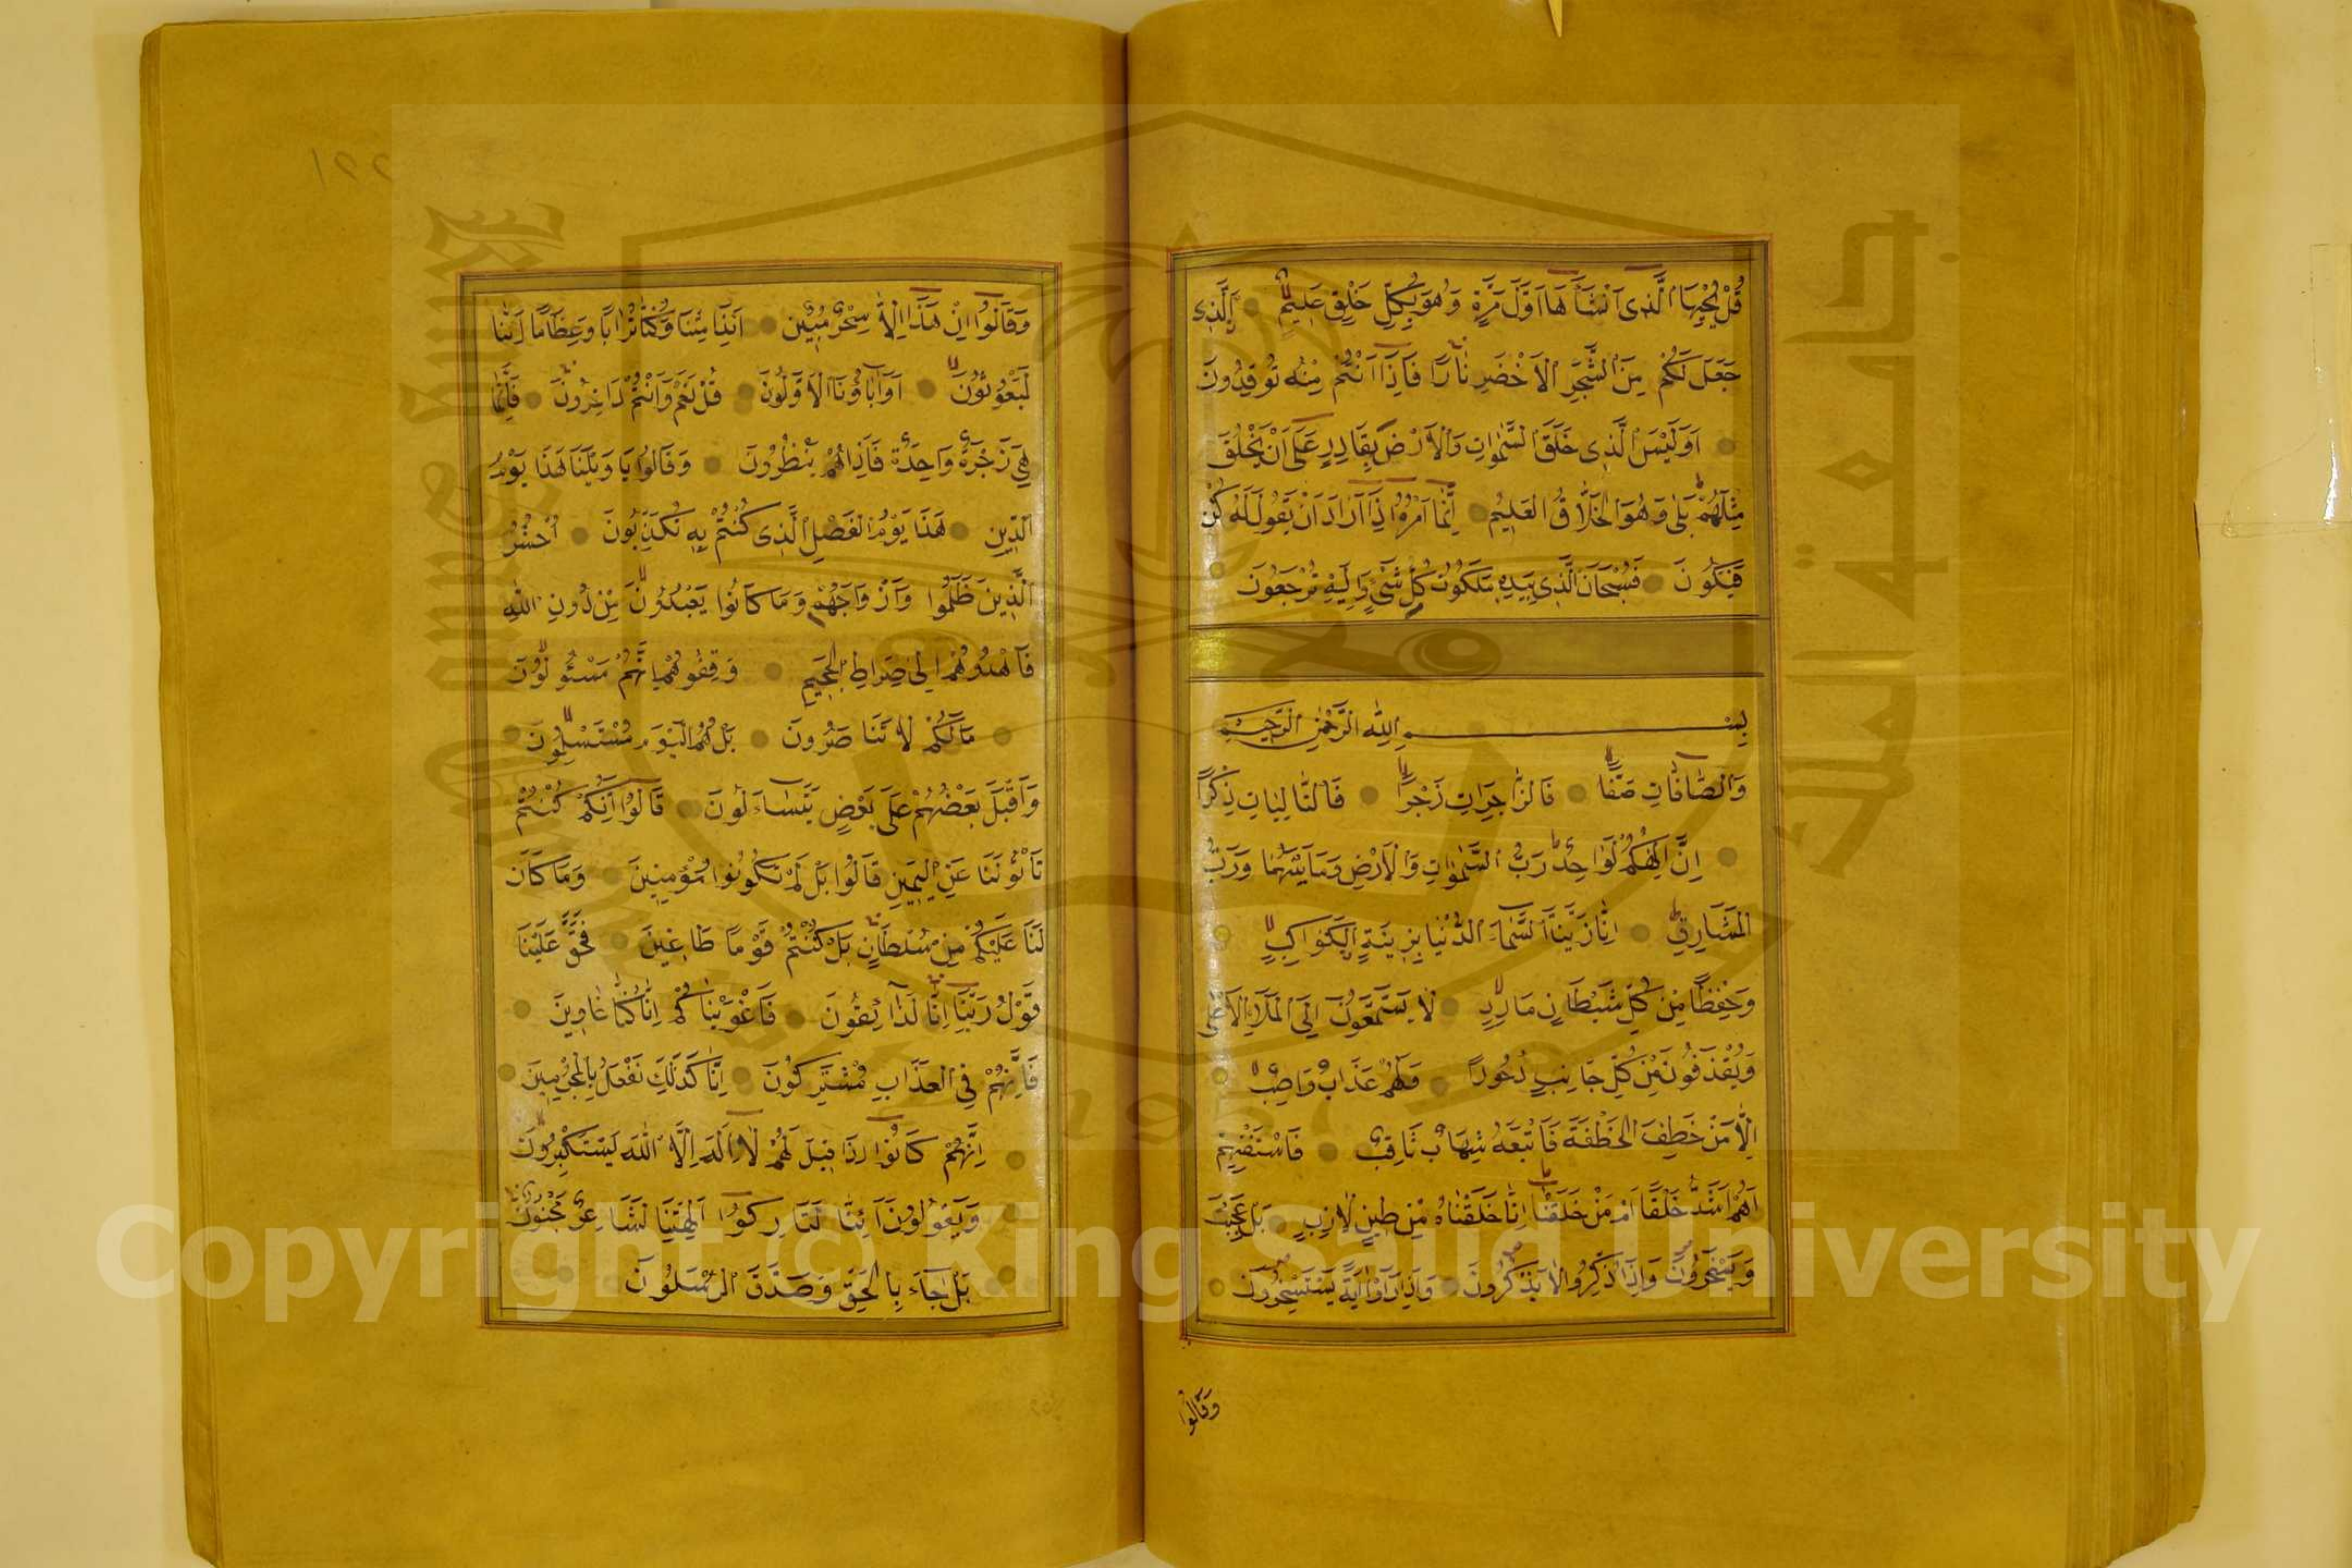 قُلْ يُحْيِيهَا الَّذِى اَنْشَاَهَا اَوَّلَ مَرَّةٍ وَهُوَ بِكُلِّ خَلْقٍ عَلِيمٌ اَلَّذِى
جَعَلَ لَكُمْ مِنَ الشَّجَرِ الْاَخْضَرِ نَارًا فَاِذَا اَنْتُمْ مِنْهُ تُوقِدُونَ
اَوَلَيْسَ الَّذِى خَلَقَ السَّمٰوَاتِ وَالْاَرْضَ بِقَادِرٍ عَلَى اَنْ يَخْلُقَ
مِثْلَهُمْ بَلٰى وَهُوَ الْخَلَّاقُ الْعَلِيمُ اِنَّمَا اَمْرُهُ اِذَا اَرَادَ اَنْ يَقُولَ لَهُ كُنْ
فَيَكُونُ فَسُبْحَانَ الَّذِى بِيَدِهِ مَلَكُوتُ كُلِّ شَىْءٍ وَاِلَيْهِ تُرْجَعُونَ
بِسْمِ اللّٰهِ الرَّحْمٰنِ الرَّحِيمِ
وَالصَّافَّاتِ صَفًّا فَالزَّاجِرَاتِ زَجْرًا فَالتَّالِيَاتِ ذِكْرًا
اِنَّ اِلٰهَكُمْ لَوَاحِدٌ رَبُّ السَّمٰوَاتِ وَالْاَرْضِ وَمَا بَيْنَهُمَا وَرَبُّ
الْمَشَارِقِ اِنَّا زَيَّنَّا السَّمَاءَ الدُّنْيَا بِزِينَةٍ الْكَوَاكِبِ
وَحِفْظًا مِنْ كُلِّ شَيْطَانٍ مَارِدٍ لَا يَسَّمَّعُونَ اِلَى الْمَلَاِ الْاَعْلٰى
وَيُقْذَفُونَ مِنْ كُلِّ جَانِبٍ دُحُورًا وَلَهُمْ عَذَابٌ وَاصِبٌ
اِلَّا مَنْ خَطِفَ الْخَطْفَةَ فَاَتْبَعَهُ شِهَابٌ ثَاقِبٌ فَاسْتَفْتِهِمْ
اَهُمْ اَشَدُّ خَلْقًا اَمْ مَنْ خَلَقْنَا اِنَّا خَلَقْنَاهُمْ مِنْ طِينٍ لَازِبٍ بَلْ عَجِبْتَ
وَيَسْخَرُونَ وَاِذَا ذُكِّرُوا لَا يَذْكُرُونَ وَاِذَا رَاَوْا اٰيَةً يَسْتَسْخِرُونَ
وَقَالُوا
وَقَالُوا اِنْ هٰذَا اِلَّا سِحْرٌ مُبِينٌ اَئِذَا مِتْنَا وَكُنَّا تُرَابًا وَعِظَامًا اَئِنَّا
لَمَبْعُوثُونَ اَوَاٰبَاؤُنَا الْاَوَّلُونَ قُلْ نَعَمْ وَاَنْتُمْ دَاخِرُونَ فَاِنَّمَا
هِىَ زَجْرَةٌ وَاحِدَةٌ فَاِذَاهُمْ يَنْظُرُونَ وَقَالُوا يَا وَيْلَنَا هٰذَا يَوْمُ
الدِّينِ هٰذَا يَوْمُ الْفَصْلِ الَّذِى كُنْتُمْ بِهِ تُكَذِّبُونَ اُحْشُرُوا
الَّذِينَ ظَلَمُوا وَاَزْوَاجَهُمْ وَمَا كَانُوا يَعْبُدُونَ مِنْ دُونِ اللّٰهِ
فَاهْدُوهُمْ اِلٰى صِرَاطِ الْجَحِيمِ وَقِفُوهُمْ اِنَّهُمْ مَسْئُولُونَ
مَالَكُمْ لَا تَنَاصَرُونَ بَلْ هُمُ الْيَوْمَ مُسْتَسْلِمُونَ
وَاَقْبَلَ بَعْضُهُمْ عَلٰى بَعْضٍ يَتَسَاءَلُونَ قَالُوا اِنَّكُمْ كُنْتُمْ
تَاْتُونَنَا عَنِ الْيَمِينِ قَالُوا بَلْ لَمْ تَكُونُوا مُؤْمِنِينَ وَمَا كَانَ
لَنَا عَلَيْكُمْ مِنْ سُلْطَانٍ بَلْ كُنْتُمْ قَوْمًا طَاغِينَ فَحَقَّ عَلَيْنَا
قَوْلُ رَبِّنَا اِنَّا لَذَائِقُونَ فَاَغْوَيْنَاكُمْ اِنَّا كُنَّا غَاوِينَ
فَاِنَّهُمْ فِى الْعَذَابِ مُشْتَرِكُونَ اِنَّا كَذٰلِكَ نَفْعَلُ بِالْمُجْرِمِينَ
اِنَّهُمْ كَانُوا اِذَا قِيلَ لَهُمْ لَا اِلٰهَ اِلَّا اللّٰهُ يَسْتَكْبِرُونَ
وَيَقُولُونَ اَئِنَّا لَتَارِكُوا اٰلِهَتِنَا لِشَاعِرٍ مَجْنُونٍ
بَلْ جَاءَ بِالْحَقِّ وَصَدَّقَ الْمُرْسَلِينَ
جامعة الملك سعود
King Saud University
1957
Copyright © King Saud University